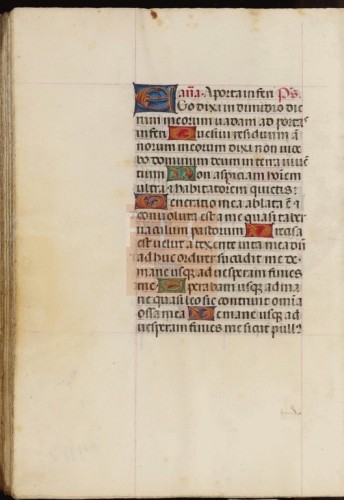 an̄a. A porta inferi P̄s.
Ego dixi in dimidio die
rum meorum vadam ad portas
inferi Quesivi residuum an
norum meorum dixi non vide
bo dominum deum in terra viven
tium Non aspiciam hominem
ultra & habitatorem quietis:
Generatio mea ablata ē &
convoluta est a me quasi taber
naculum pastorum Precisa
est velut a texente vita mea dū
adhuc ordirer succidit me de
mane usque ad vesperam finies
me. Sperabam usque ad ma
ne quasi leo sic contrivit omnia
ossa mea De mane usque ad
vesperam finies me sicut pullꝰ